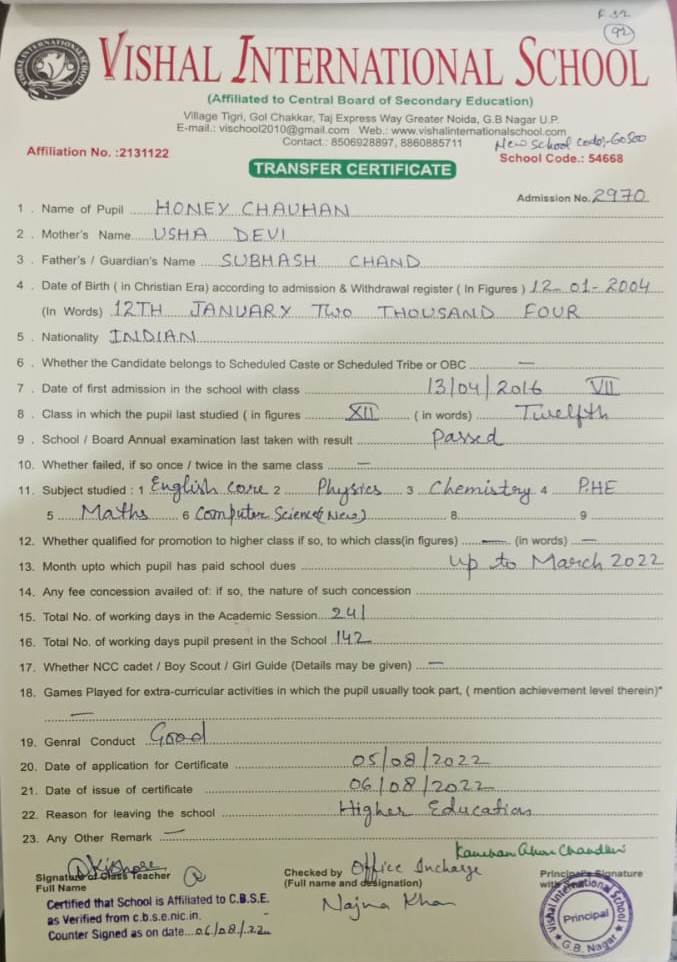 F-32
92
VISHAL INTERNATIONAL SCHOOL
(Affiliated to Central Board of Secondary Education)
Village Tigri, Gol Chakkar, Taj Express Way Greater Noida, G.B Nagar U.P.
E-mail.: vischool2010@gmail.com Web.: www.vishalinternationalschool.com
Contact.: 8506928897, 8860885711
New school code;-60500
Affiliation No. :2131122
School Code.: 54668
TRANSFER CERTIFICATE
Admission No. 2970
1 . Name of Pupil HONEY CHAUHAN
2 . Mother's Name USHA DEVI
3 . Father's / Guardian's Name SUBHASH CHAND
4 . Date of Birth ( in Christian Era) according to admission & Withdrawal register ( In Figures ) 12-01-2004
(In Words) 12TH JANUARY TWO THOUSAND FOUR
5 . Nationality INDIAN
6 . Whether the Candidate belongs to Scheduled Caste or Scheduled Tribe or OBC —
7 . Date of first admission in the school with class 13/04/2016 VII
8 . Class in which the pupil last studied ( in figures XII ( in words) Twelfth
9 . School / Board Annual examination last taken with result Passed
10. Whether failed, if so once / twice in the same class —
11. Subject studied : 1 English core 2 Physics 3 Chemistry 4 P.HE
5 Maths 6 Computer Science(New) 8 9
12. Whether qualified for promotion to higher class if so, to which class(in figures) — (in words) —
13. Month upto which pupil has paid school dues up to March 2022
14. Any fee concession availed of: if so, the nature of such concession
15. Total No. of working days in the Academic Session 241
16. Total No. of working days pupil present in the School 142
17. Whether NCC cadet / Boy Scout / Girl Guide (Details may be given) —
18. Games Played for extra-curricular activities in which the pupil usually took part, ( mention achievement level therein)*
—
19. Genral Conduct Good
20. Date of application for Certificate 05/08/2022
21. Date of issue of certificate 06/08/2022
22. Reason for leaving the school Higher Education
23. Any Other Remark —
Kishore
Signature of Class Teacher
Full Name
Checked by Office Incharge
(Full name and designation)
Najma Khan
Principal's Signature
with
Certified that School is Affiliated to C.B.S.E.
as Verified from c.b.s.e.nic.in.
Counter Signed as on date...06/08/22
Vishal International School
Principal
G.B. Nagar